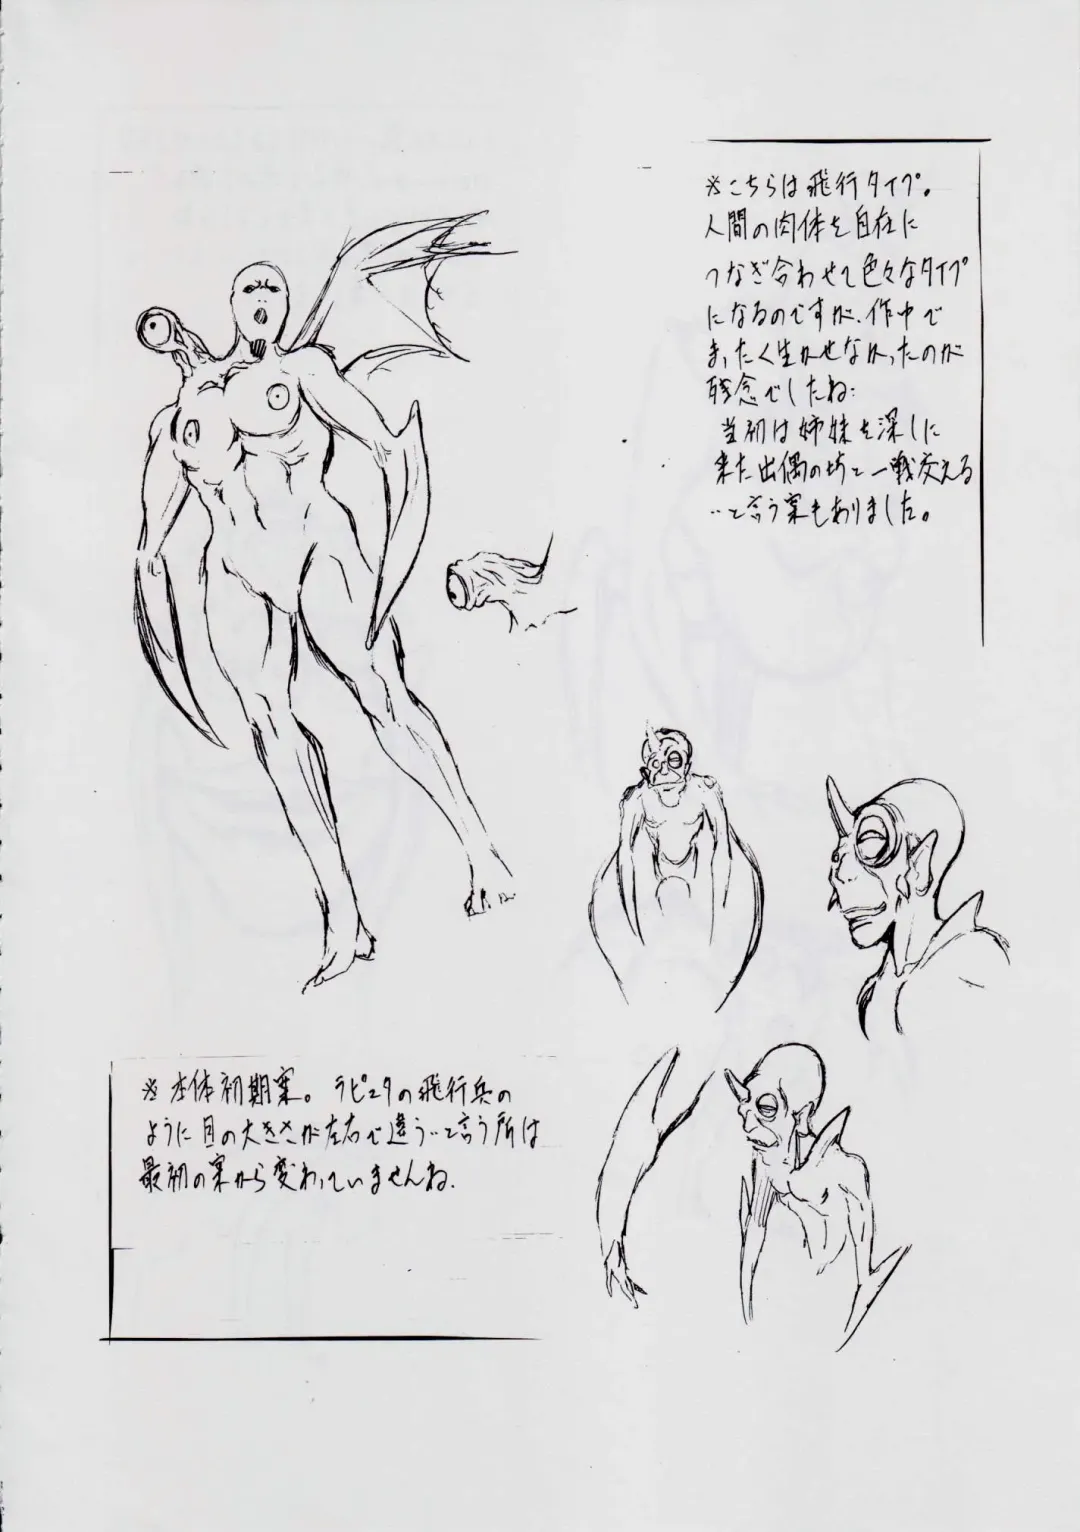 ※こちらは飛行タイプ。
人間の肉体を自在に
つなぎ合わせて色々なタイプ
になるのですが、作中で
まったく生かせなかったのが
残念でしたね…
当初は姉妹を深しに
来た出偶の坊と一戦交える
…と言う案もありました。
※本体初期案。ラピュタの飛行兵の
ように目の大きさが左右で違う…と言う所は
最初の案から変わっていませんね.